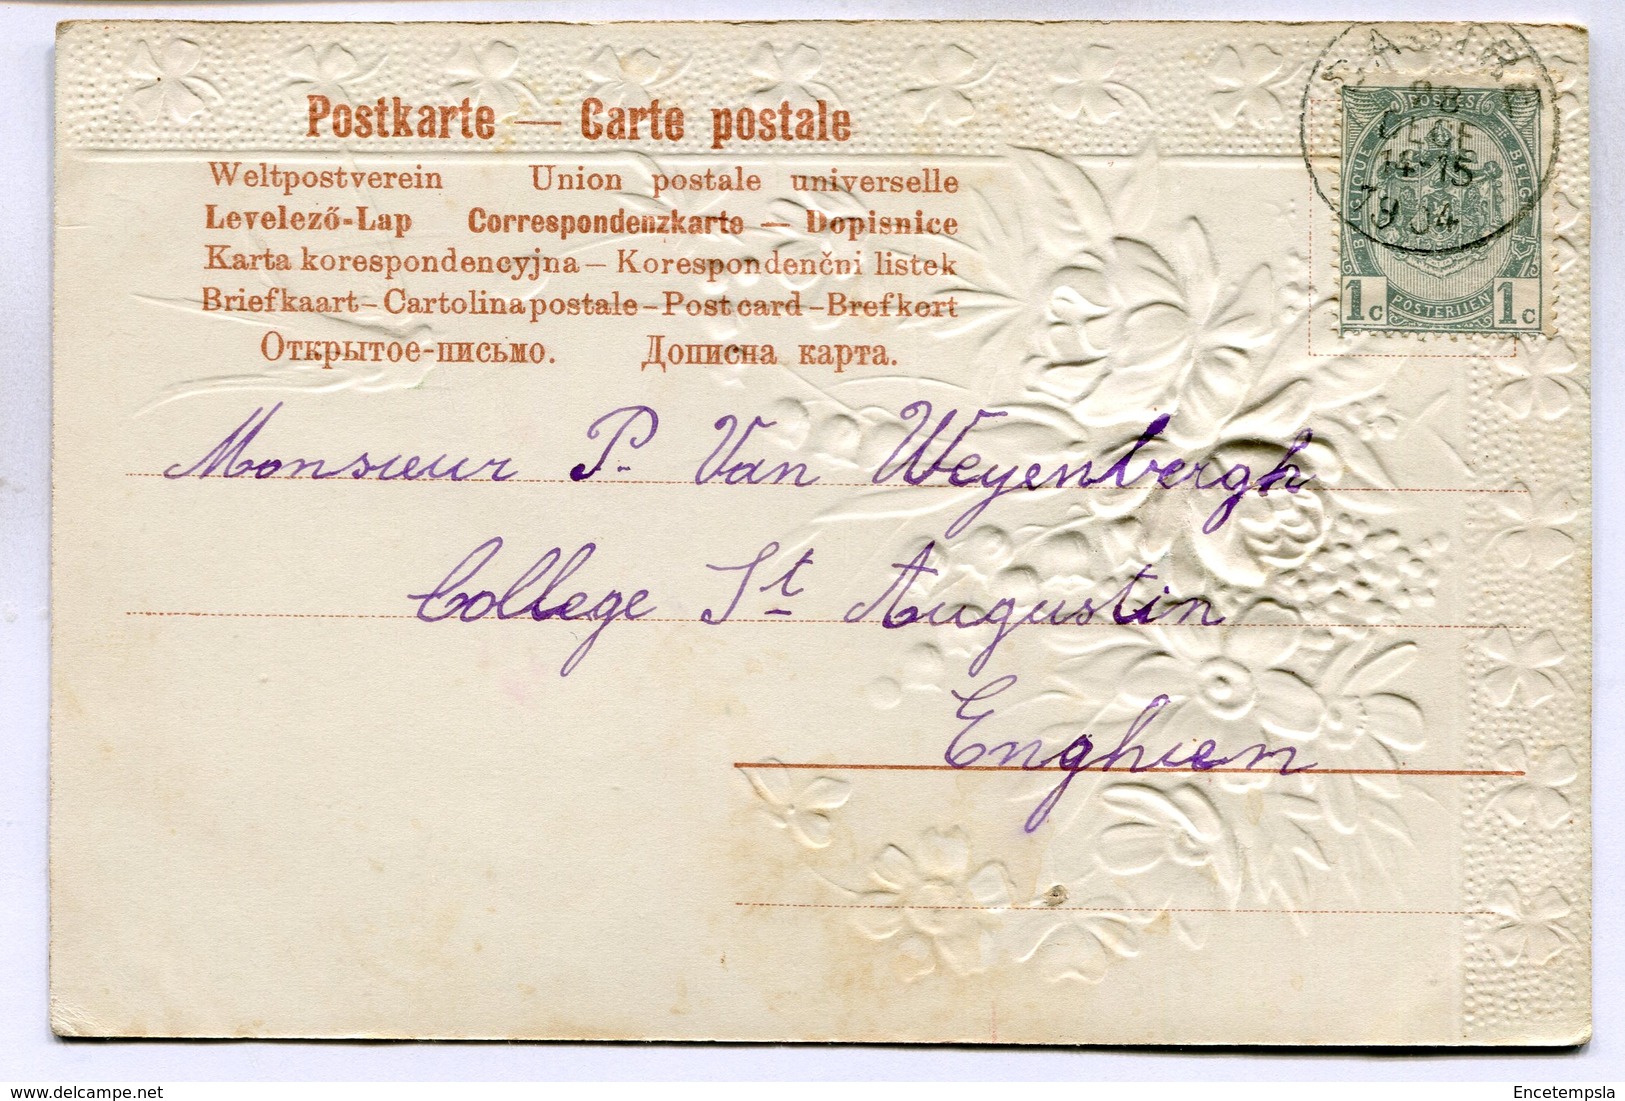 Postkarte — Carte postale
Weltpostverein Union postale universelle
Levelező-Lap Correspondenzkarte — Dopisnice
Karta korespondencyjna – Korespondenčni listek
Briefkaart – Cartolina postale – Post card – Brefkort
Открытое-письмо. Дописна карта.
POSTES
BELGIQUE BELGIË
1c POSTERIJEN 1c
14-15
Monsieur P. Van Weyenbergh
College St Augustin
Enghien
Encetempsla